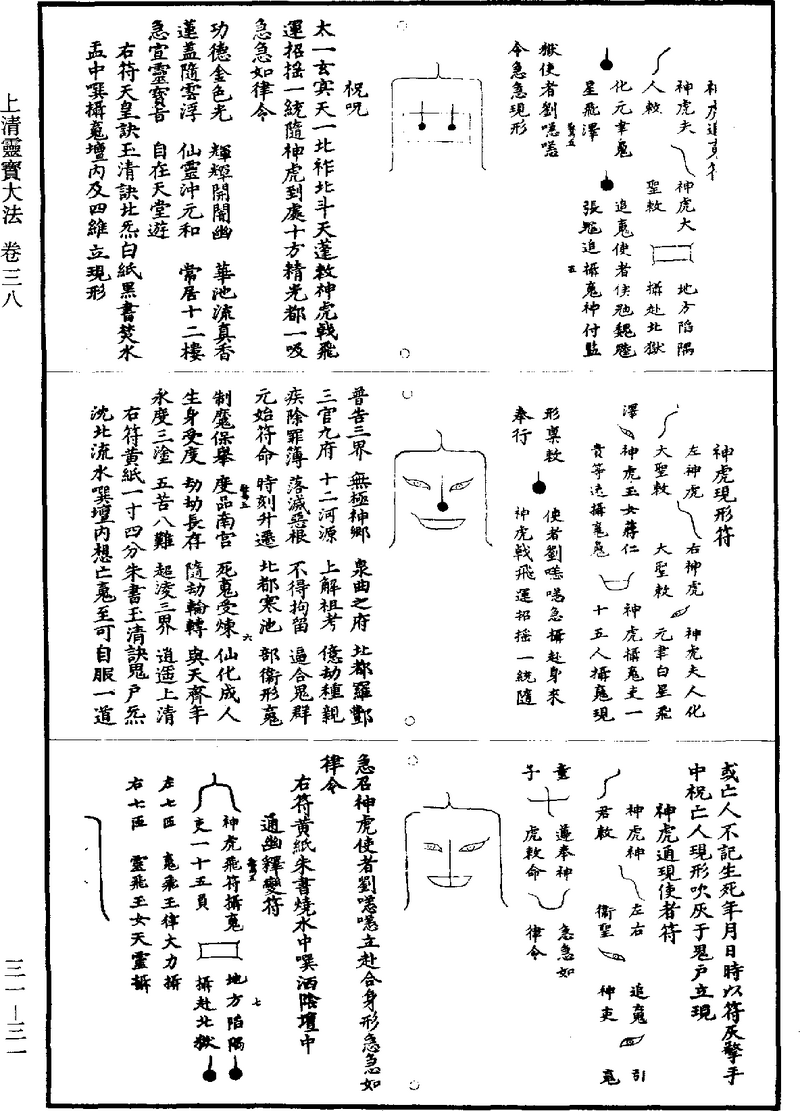 上清靈寶大法　卷三八
三一—三一一
神虎追魂符
神虎夫　神虎大　地方陷隅
人敕　聖敕　攝赴北獄
化元聿魂　追魂使者侯
星飛澤　張　追攝魂神付監
獄使者劉
令急急現形
祝咒
太一玄冥天一北祚北斗天蓬敕神虎戟飛
運招搖一統隨神虎到處十方精光都一吸
急急如律令
功德金色光　輝輝開闇幽　華池流真香
蓮蓋隨雲浮　仙靈沖元和　常居十二樓
急宣靈寶音　自在天堂遊
右符天皇訣玉清訣北炁白紙黑書焚水
盂中噀攝魂壇內及四維立現形
神虎現形符
左神虎　右神虎　神虎夫人化
大聖敕　大聖敕　元聿白星飛
澤　神虎玉女蔣仁　神虎攝魂吏一
貴等速攝魂魂　十五人攝魂現
形稟敕　使者劉　急攝赴身來
奉行　神虎戟飛運招搖一統隨
普告三界　無極神鄉　泉曲之府　北都羅酆
三官九府　十二河源　上解祖考　億劫種親
疾除罪簿　落滅惡根　不得拘留　逼合鬼群
元始符命　時刻升遷　北都寒池　部衛形魂
制魔保舉　度品南宮　死魂受煉　仙化成人
生身受度　劫劫長存　隨劫輪轉　與天齊年
永度三塗　五苦八難　超淩三界　逍遥上清
右符黃紙一寸四分朱書玉清訣鬼户炁
沈北流水噀壇內想亡魂至可自服一道
或亡人不記生死年月日時以符灰擎手
中祝亡人現形吹灰于鬼户立現
神虎通現使者符
神虎神　左右　追魂　引
君敕　衛聖　神吏　魂
童　蓮奉神　急急如
子　虎敕命　律令
急召神虎使者劉立赴合身形急急如
律令
右符黃紙朱書燒水中噀洒陰壇中
通幽釋變符
神虎飛符攝魂　地方陷隅
吏一十五員　攝赴北獄
左七匝　魂飛玉律大力攝
右七匝　靈飛玉女天靈攝